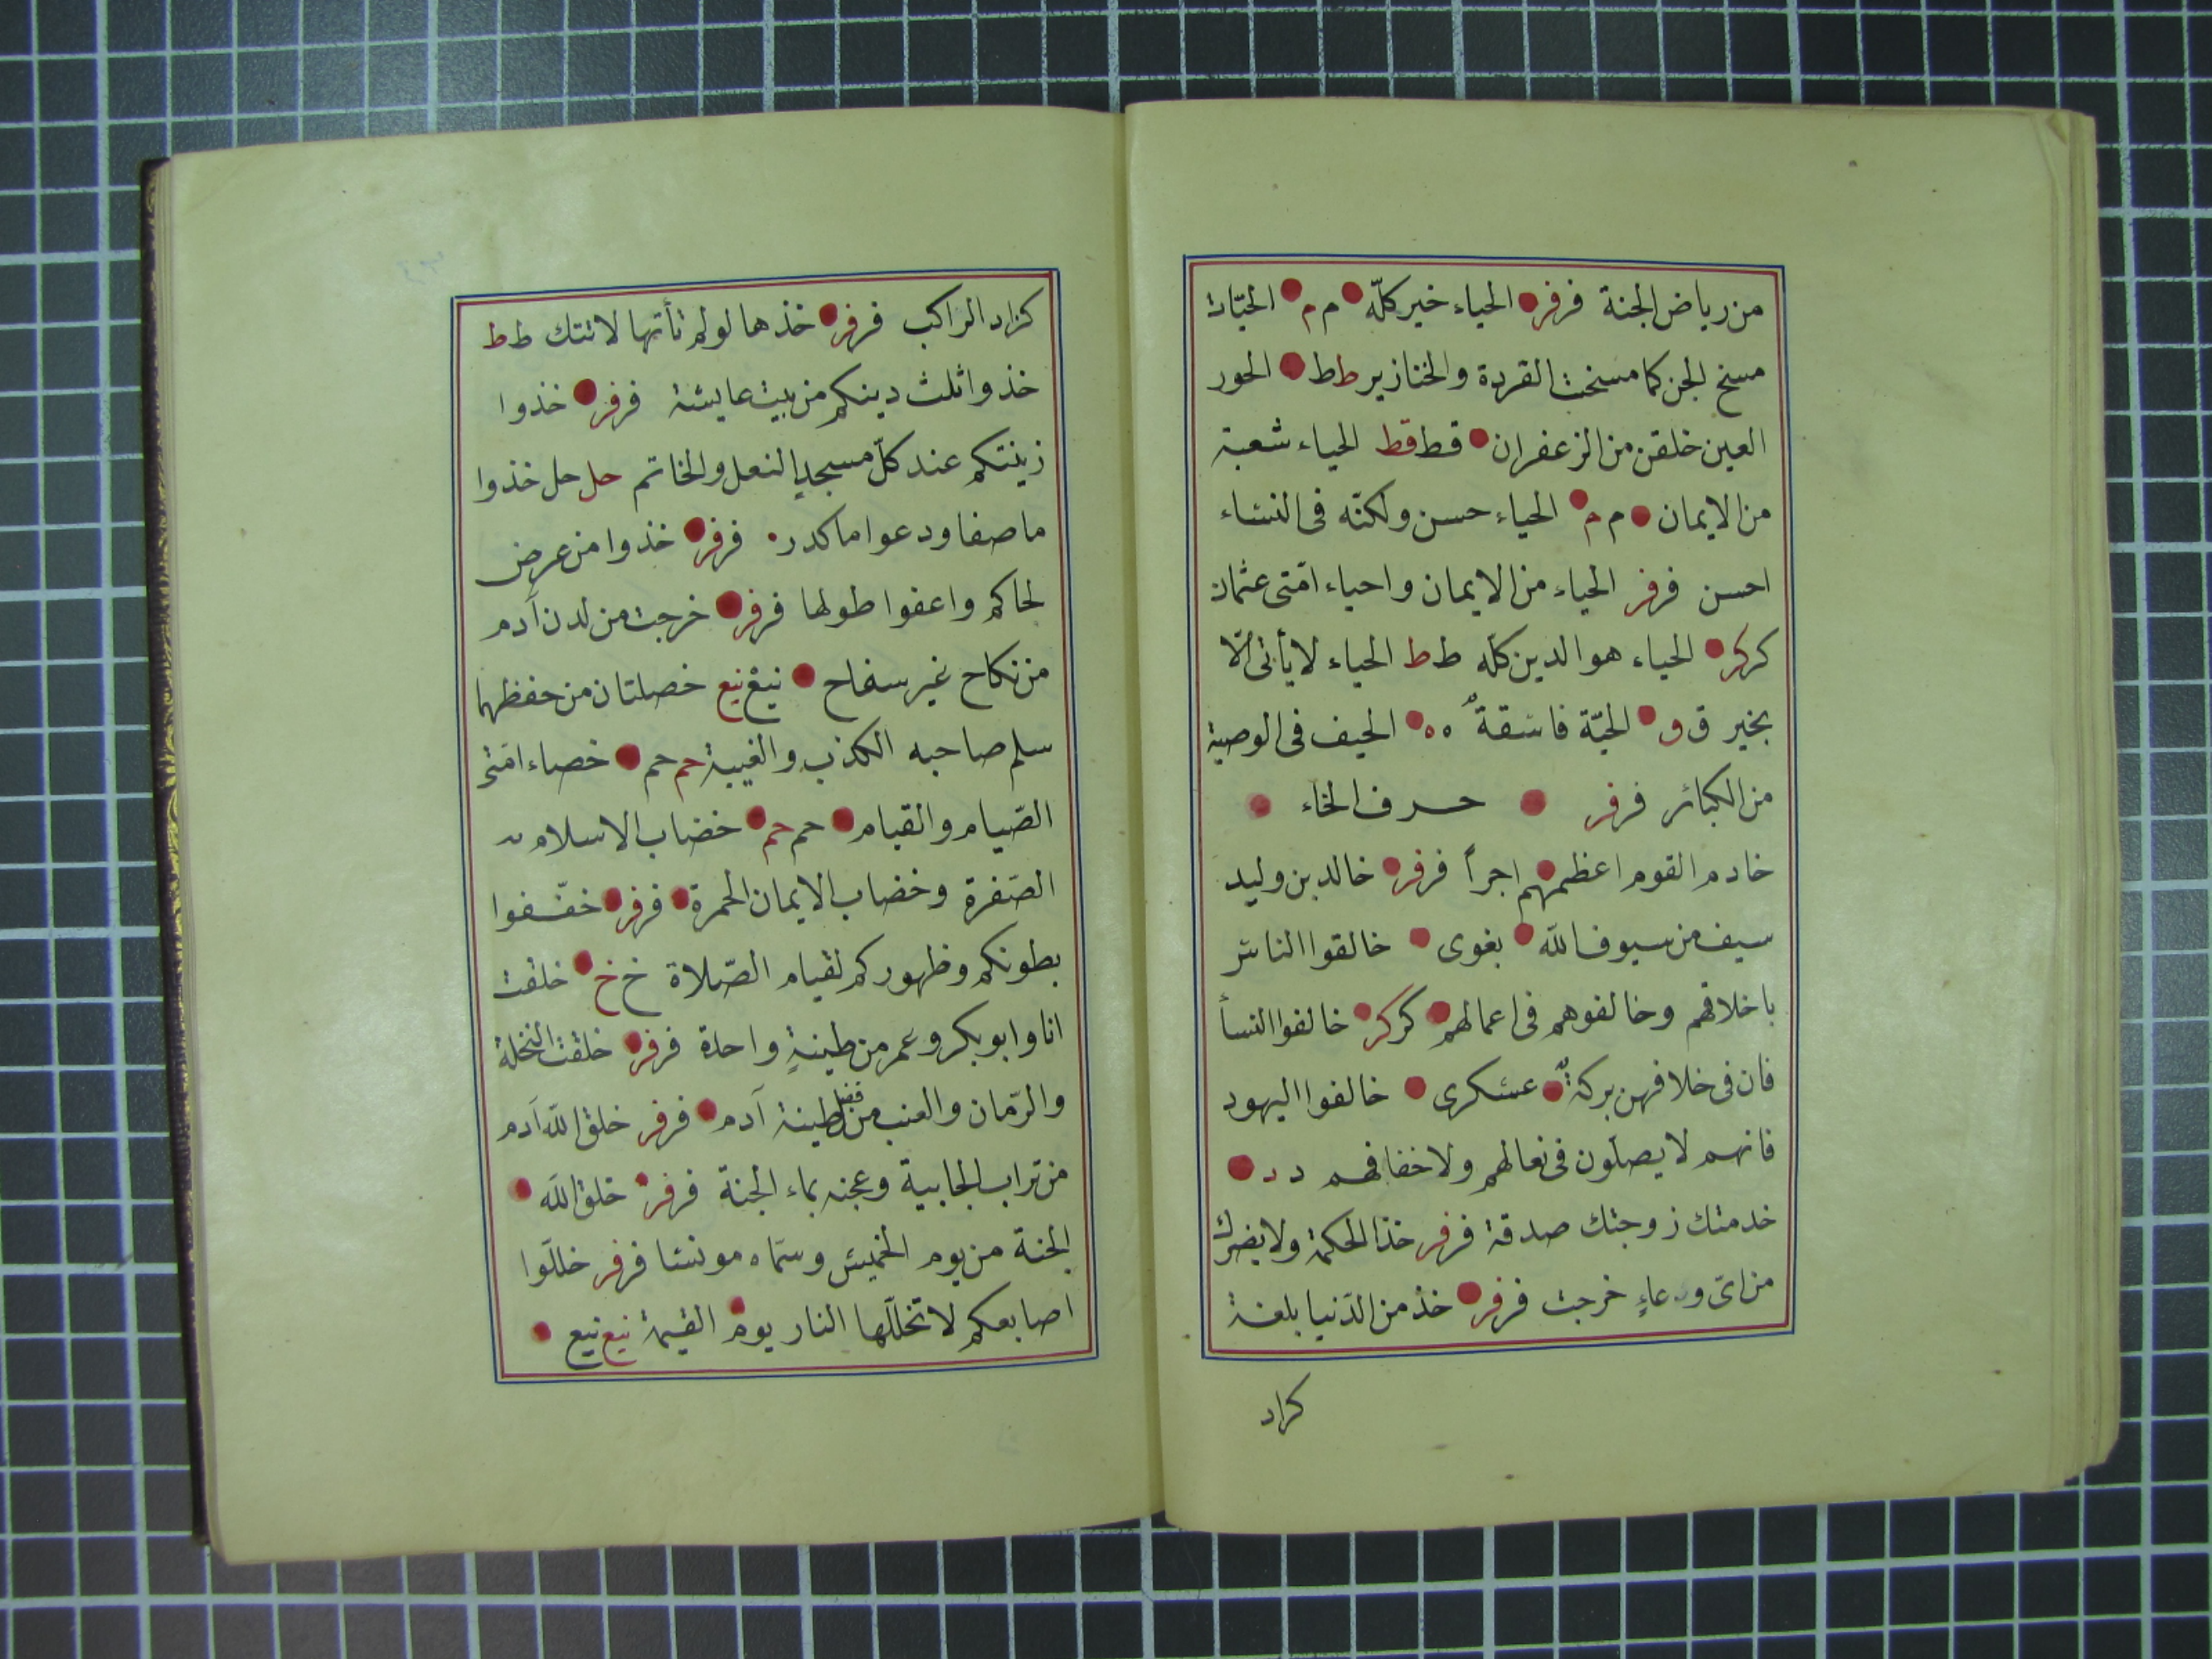 من رياض الجنة فرفر الحياء خير كلّه م م الحيّات
مسخ الجن كما مسخت القردة والخنازير ط ط الحور
العين خلقن من الزعفران قط قط الحياء شعبة
من الايمان م م الحياء حسن ولكنّه فى النساء
احسن فرفر الحياء من الايمان واحياء امّتى عثمان
كركر الحياء هو الدين كلّه ط ط الحياء لا يأتى الّا
بخير ق ق الحيّة فاسقة ه ه الحيف فى الوصية
من الكبائر فرفر حرف الخاء
خادم القوم اعظمهم اجراً فرفر خالد بن وليد
سيف من سيوف الله بغوى خالقوا الناس
باخلاقهم وخالفوهم فى اعمالهم كركر خالفوا النسأ
فان فى خلافهن بركةٌ عسكرى خالفوا اليهود
فانهم لا يصلون فى نعالهم ولا خفافهم د د
خدمتك زوجتك صدقة فرفر خذ الحكمة ولا يضرك
من اىّ وعاءٍ خرجت فرفر خذ من الدّنيا بلغة
كزاد
كزاد الراكب فرفر خذها لو لم تأتها لاتتك ط ط
خذوا ثلث دينكم من بيت عايشة فرفر خذوا
زينتكم عند كلّ مسجدٍ النعل والخاتم حل حل خذوا
ما صفا ودعوا ما كدر فرفر خذوا من عرض
لحاكم واعفوا طولها فرفر خرجت من لدن آدم
من نكاح غير سفاح نيع نيع خصلتان من حفظهما
سلم صاحبه الكذب والغيبة حم حم خصاء امّتى
الصّيام والقيام حم حم خضاب الاسلام
الصّفرة وخضاب الايمان الحمرة فرفر خفّفوا
بطونكم وظهوركم لقيام الصّلاة خ خ خلقت
انا وابو بكر وعمر من طينةٍ واحدة فرفر خلقت النخلة
والرّمان والعنب من فضل طينة آدم فرفر خلق الله آدم
من تراب الجابية وعجنه بماء الجنة فرفر خلق الله
الجنة من يوم الخميس وسمّاه مونسا فرفر خلّلوا
اصابعكم لا تخلّلها النار يوم القيمة نيع نيع